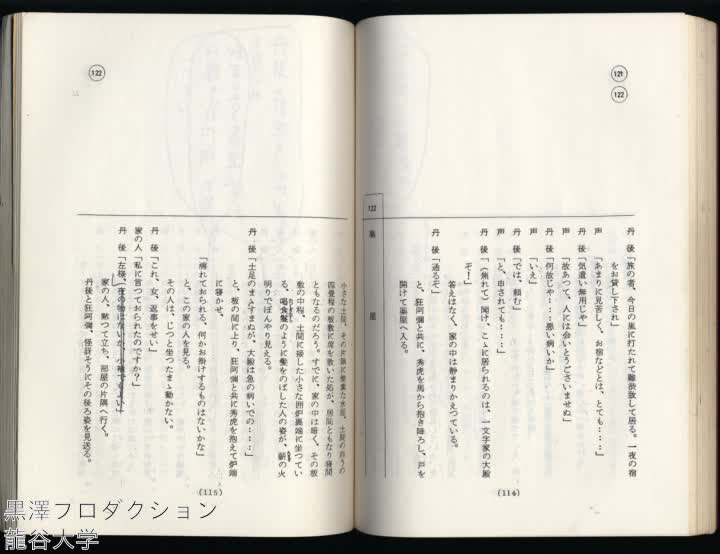 121
122
丹　後「旅の者、今日の嵐に打たれて難渋致して居る。一夜の宿
をお貸し下され」
声　　「あまりに見苦しく、お宿などとは、とても‥‥」
丹　後「気遣い無用じや」
声　　「故あつて、人には会いとうございませぬ」
丹　後「何故じや‥‥悪い病いか」
声　　「いえ」
丹　後「では、頼む」
声　　「と、申されても‥‥」
丹　後「（焦れて）開け、こゝに居られるのは、一文字家の大殿
ぞ！」
答えはなく、家の中は静まりかえつている。
丹　後「通るぞ」
と、狂阿彌と共に、秀虎を馬から抱き降ろし、戸を
開けて藁屋へ入る。
122
藁　屋
(114)
122
小さな土間、その片隅に粗末な水屋、土間の向うの
四畳程の板敷に蓆を敷いた処が、居間ともなり寝間
ともなるのだろう。すでに、家の中は暗く、その板
敷の中程、土間に接した小さな囲炉裏端に坐つてい
る、喝食鬘のように髪をのばした人の姿が、薪の火
明りでぼんやり見える。
丹　後「土足のまゝですまぬが、大殿は急の病いでの‥‥」
と、板の間に上り、狂阿彌と共に秀虎を抱えて炉端
に寝かせ、
「濡れておられる、何かお掛けするものはないかな」
と、この家の人を見る。
その人は、じつと坐つたまゝ動かない。
丹　後「これ、女、返事をせい」
家の人「私に言つておられたのですか？」
丹　後「左様、夜の物はないか、小袖でもよい」
家の人、黙つて立ち、部屋の片隅へ行く。
丹後と狂阿彌、怪訝そうにその後ろ姿を見送る。
(115)
黒澤プロダクション
龍谷大学